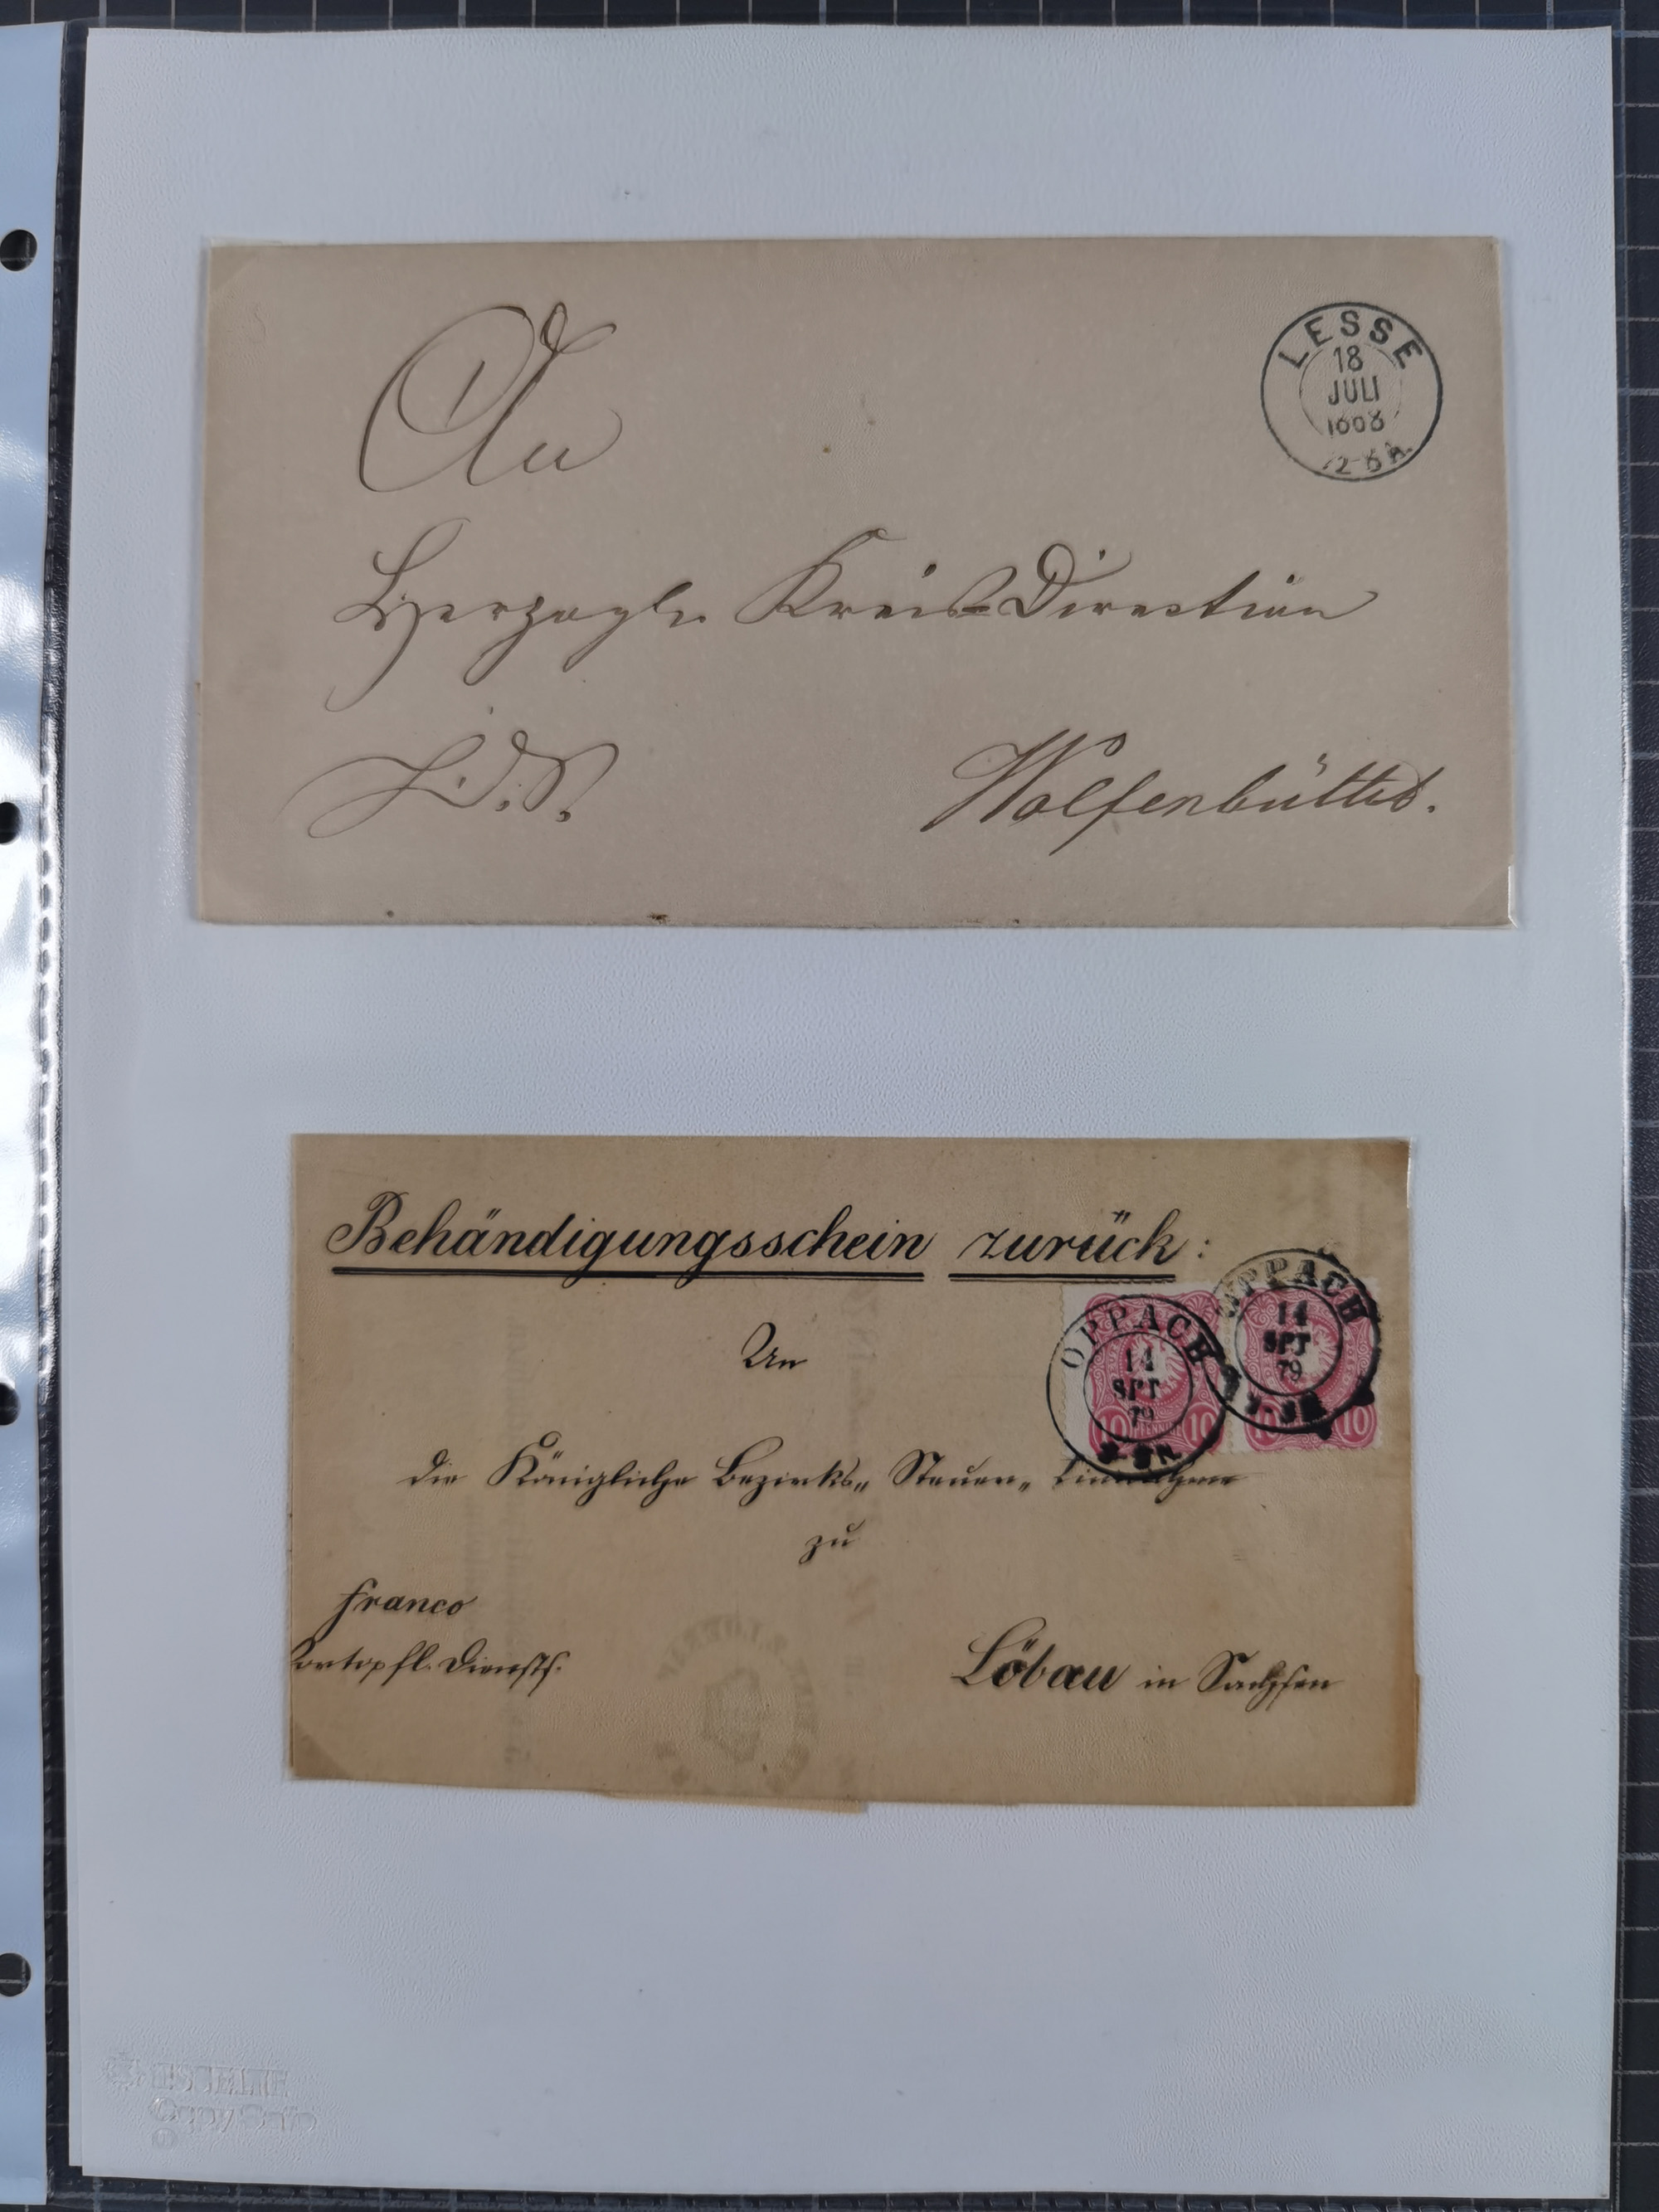 LESSE
18
JULI
An
Herzogl. Kreis-Direction
H.D.S.
Wolfenbüttel.
Behändigungsschein zurück:
OPPACH
14
SPT
79
OPPACH
14
SPT
79
10 PFENNIGE 10
10 10
An
die Königliche Bezirks„ Steuer„ Einnahme
zu
franco
portopfl. Diensts.
Löbau in Sachsen
ESSELTE
Copy Safe